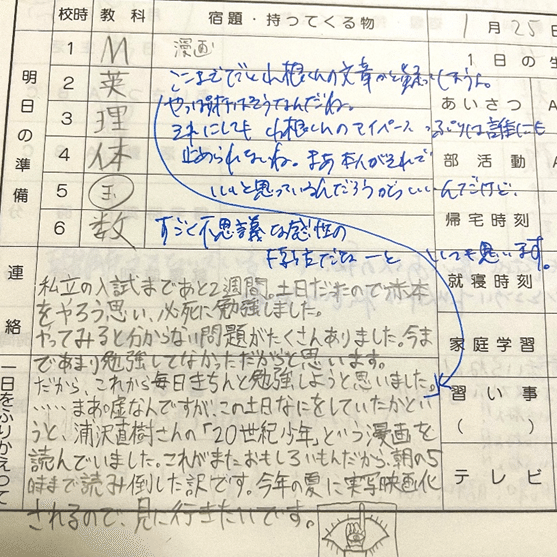 校時 教科 宿題・持ってくる物 1月25日
明日の準備
1 M 漫画
2 英
3 理
4 体
5 玉
6 数
1日の生
あいさつ A
部活動 A
帰宅時刻
就寝時刻
家庭学習
習い事
( )
テレビ
ここまで 文章かと疑ってしまうよ。
やっぱり そうなんだね。
それにしても 君のマイペースっぷりは誰にも
止められないね。まあ本人がそれで
いいと思っているんだろうからいいんだけど、
すごく不思議な感性の
だなーと いつも思います。
連絡
一日をふりかえって
私立の入試まであと2週間。土日だったので赤本
をやろう思い、必死に勉強しました。
やってみると分からない問題がたくさんありました。今ま
であまり勉強してなかっただからと思います。
だから、これから毎日きちんと勉強しようと思いました。
……まあ嘘なんですが、この土日なにをしていたかとい
うと、浦沢直樹さんの「20世紀少年」という漫画を
読んでいました。これがまたおもしろいもんだから、朝の5
時まで読み倒した訳です。今年の夏に実写映画化
されるので、見に行きたいです。